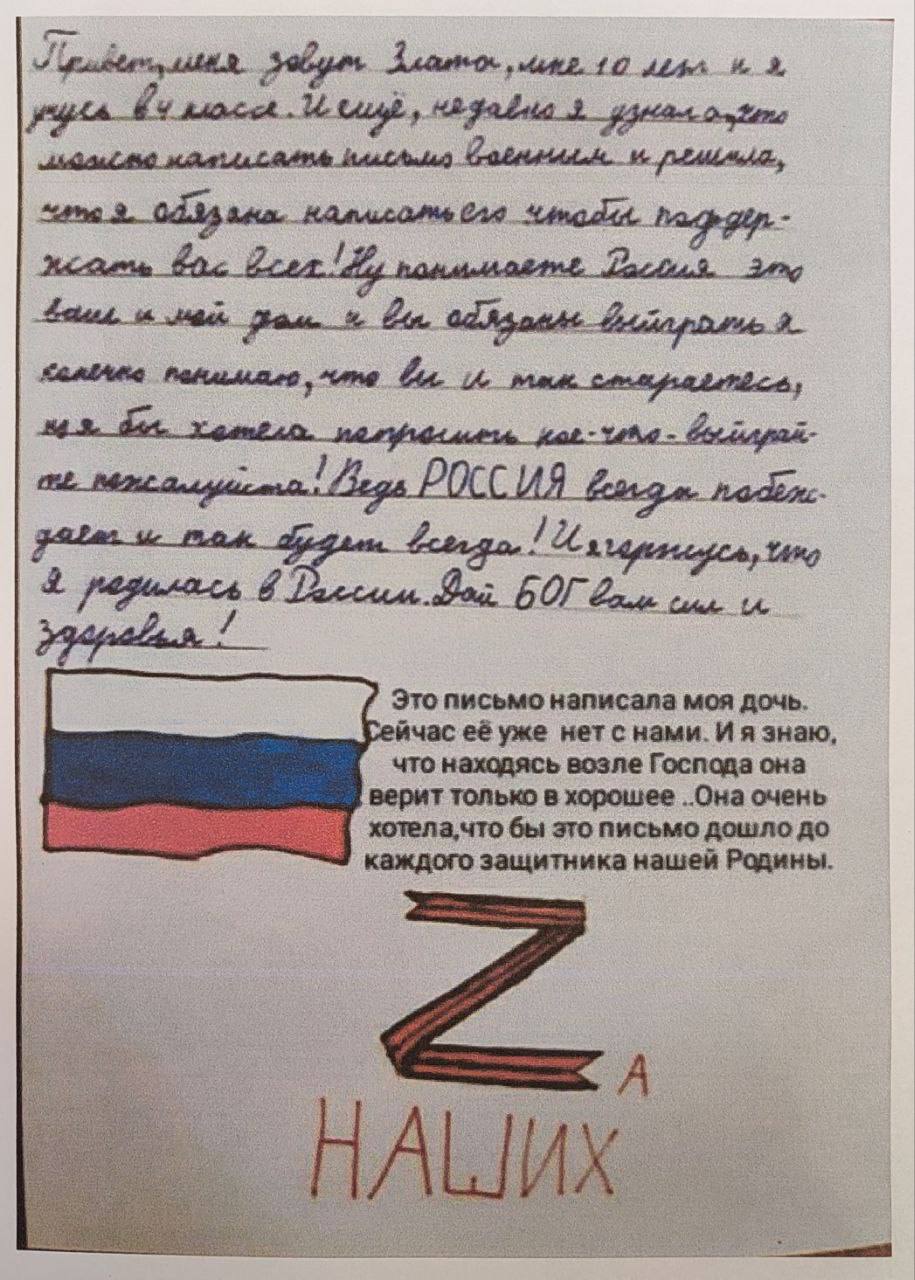 Привет, меня зовут Злата, мне 10 лет и я
учусь в 4 классе. И ещё, недавно я узнала, что
можно написать письмо военным и решила,
что я обязана написать его чтобы поддер-
жать вас всех! Ну понимаете Россия это
ваш и мой дом и вы обязаны выйграть я
конечно понимаю, что вы и так стараетесь,
но я бы хотела попросить кое-что - выйграй-
те пожалуйста! Ведь РОССИЯ всегда побеж-
дает и так будет всегда! И я горжусь, что
я родилась в России. Дай БОГ вам сил и
здоровья!
Это письмо написала моя дочь.
Сейчас её уже нет с нами. И я знаю,
что находясь возле Господа она
верит только в хорошее ..Она очень
хотела,что бы это письмо дошло до
каждого защитника нашей Родины.
Z А
НАШИХ